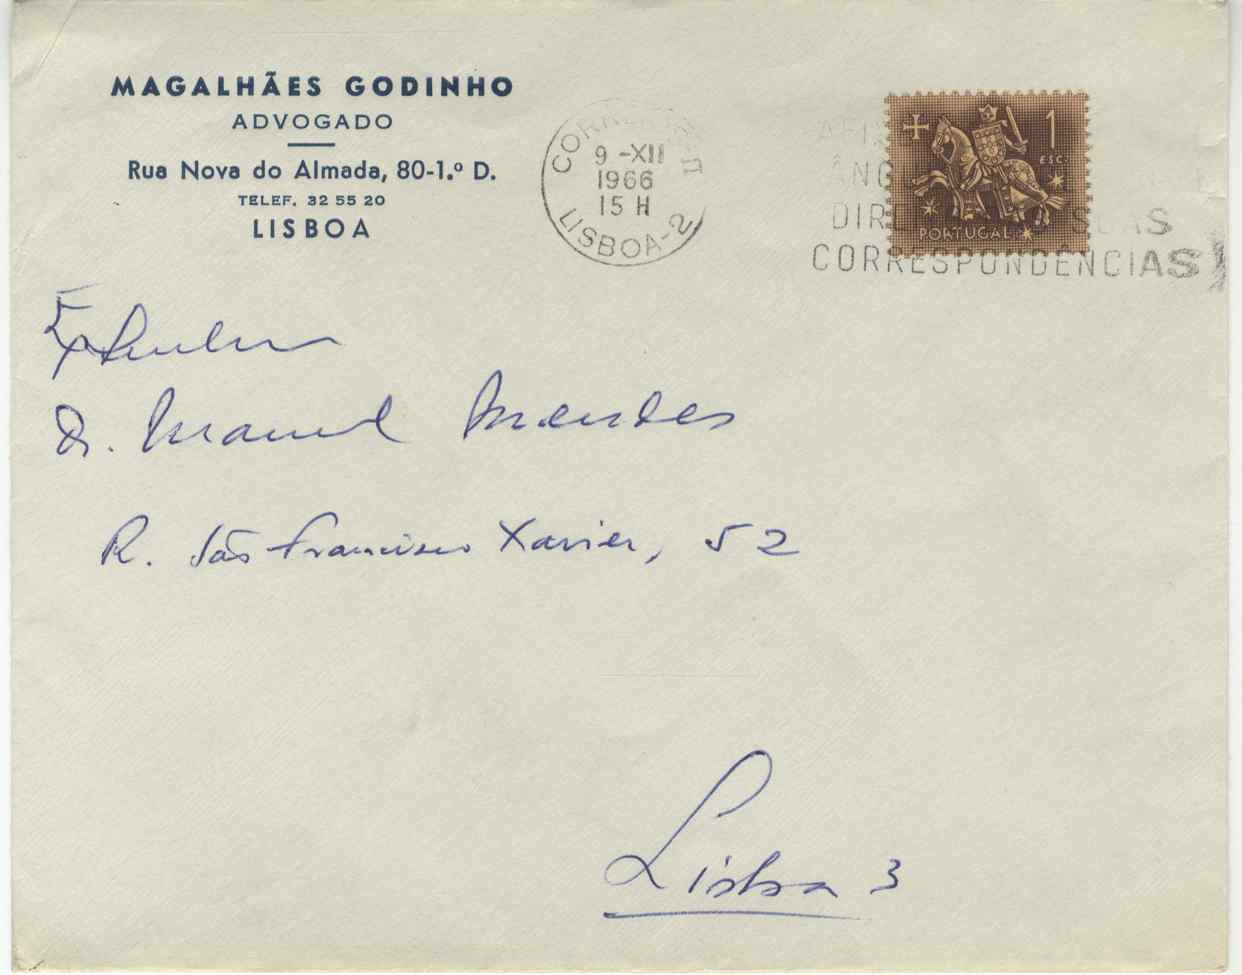 MAGALHÃES GODINHO
ADVOGADO
Rua Nova do Almada, 80-1.º D.
TELEF. 32 55 20
LISBOA
9 -XII
1966
15 H
LISBOA-2
1
ESC.
PORTUGAL
CORRESPONDÊNCIAS
Dr. Manuel Mendes
R. São Francisco Xavier, 52
Lisboa 3